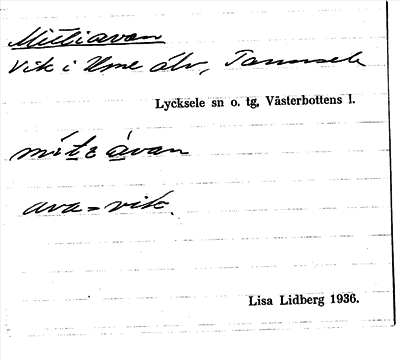 Mittiavan
Vik i Ume älv, Tannsele
Lycksele sn o. tg. Västerbottens l.
mìtɛ ávan
ava = vik.
Lisa Lidberg 1936.